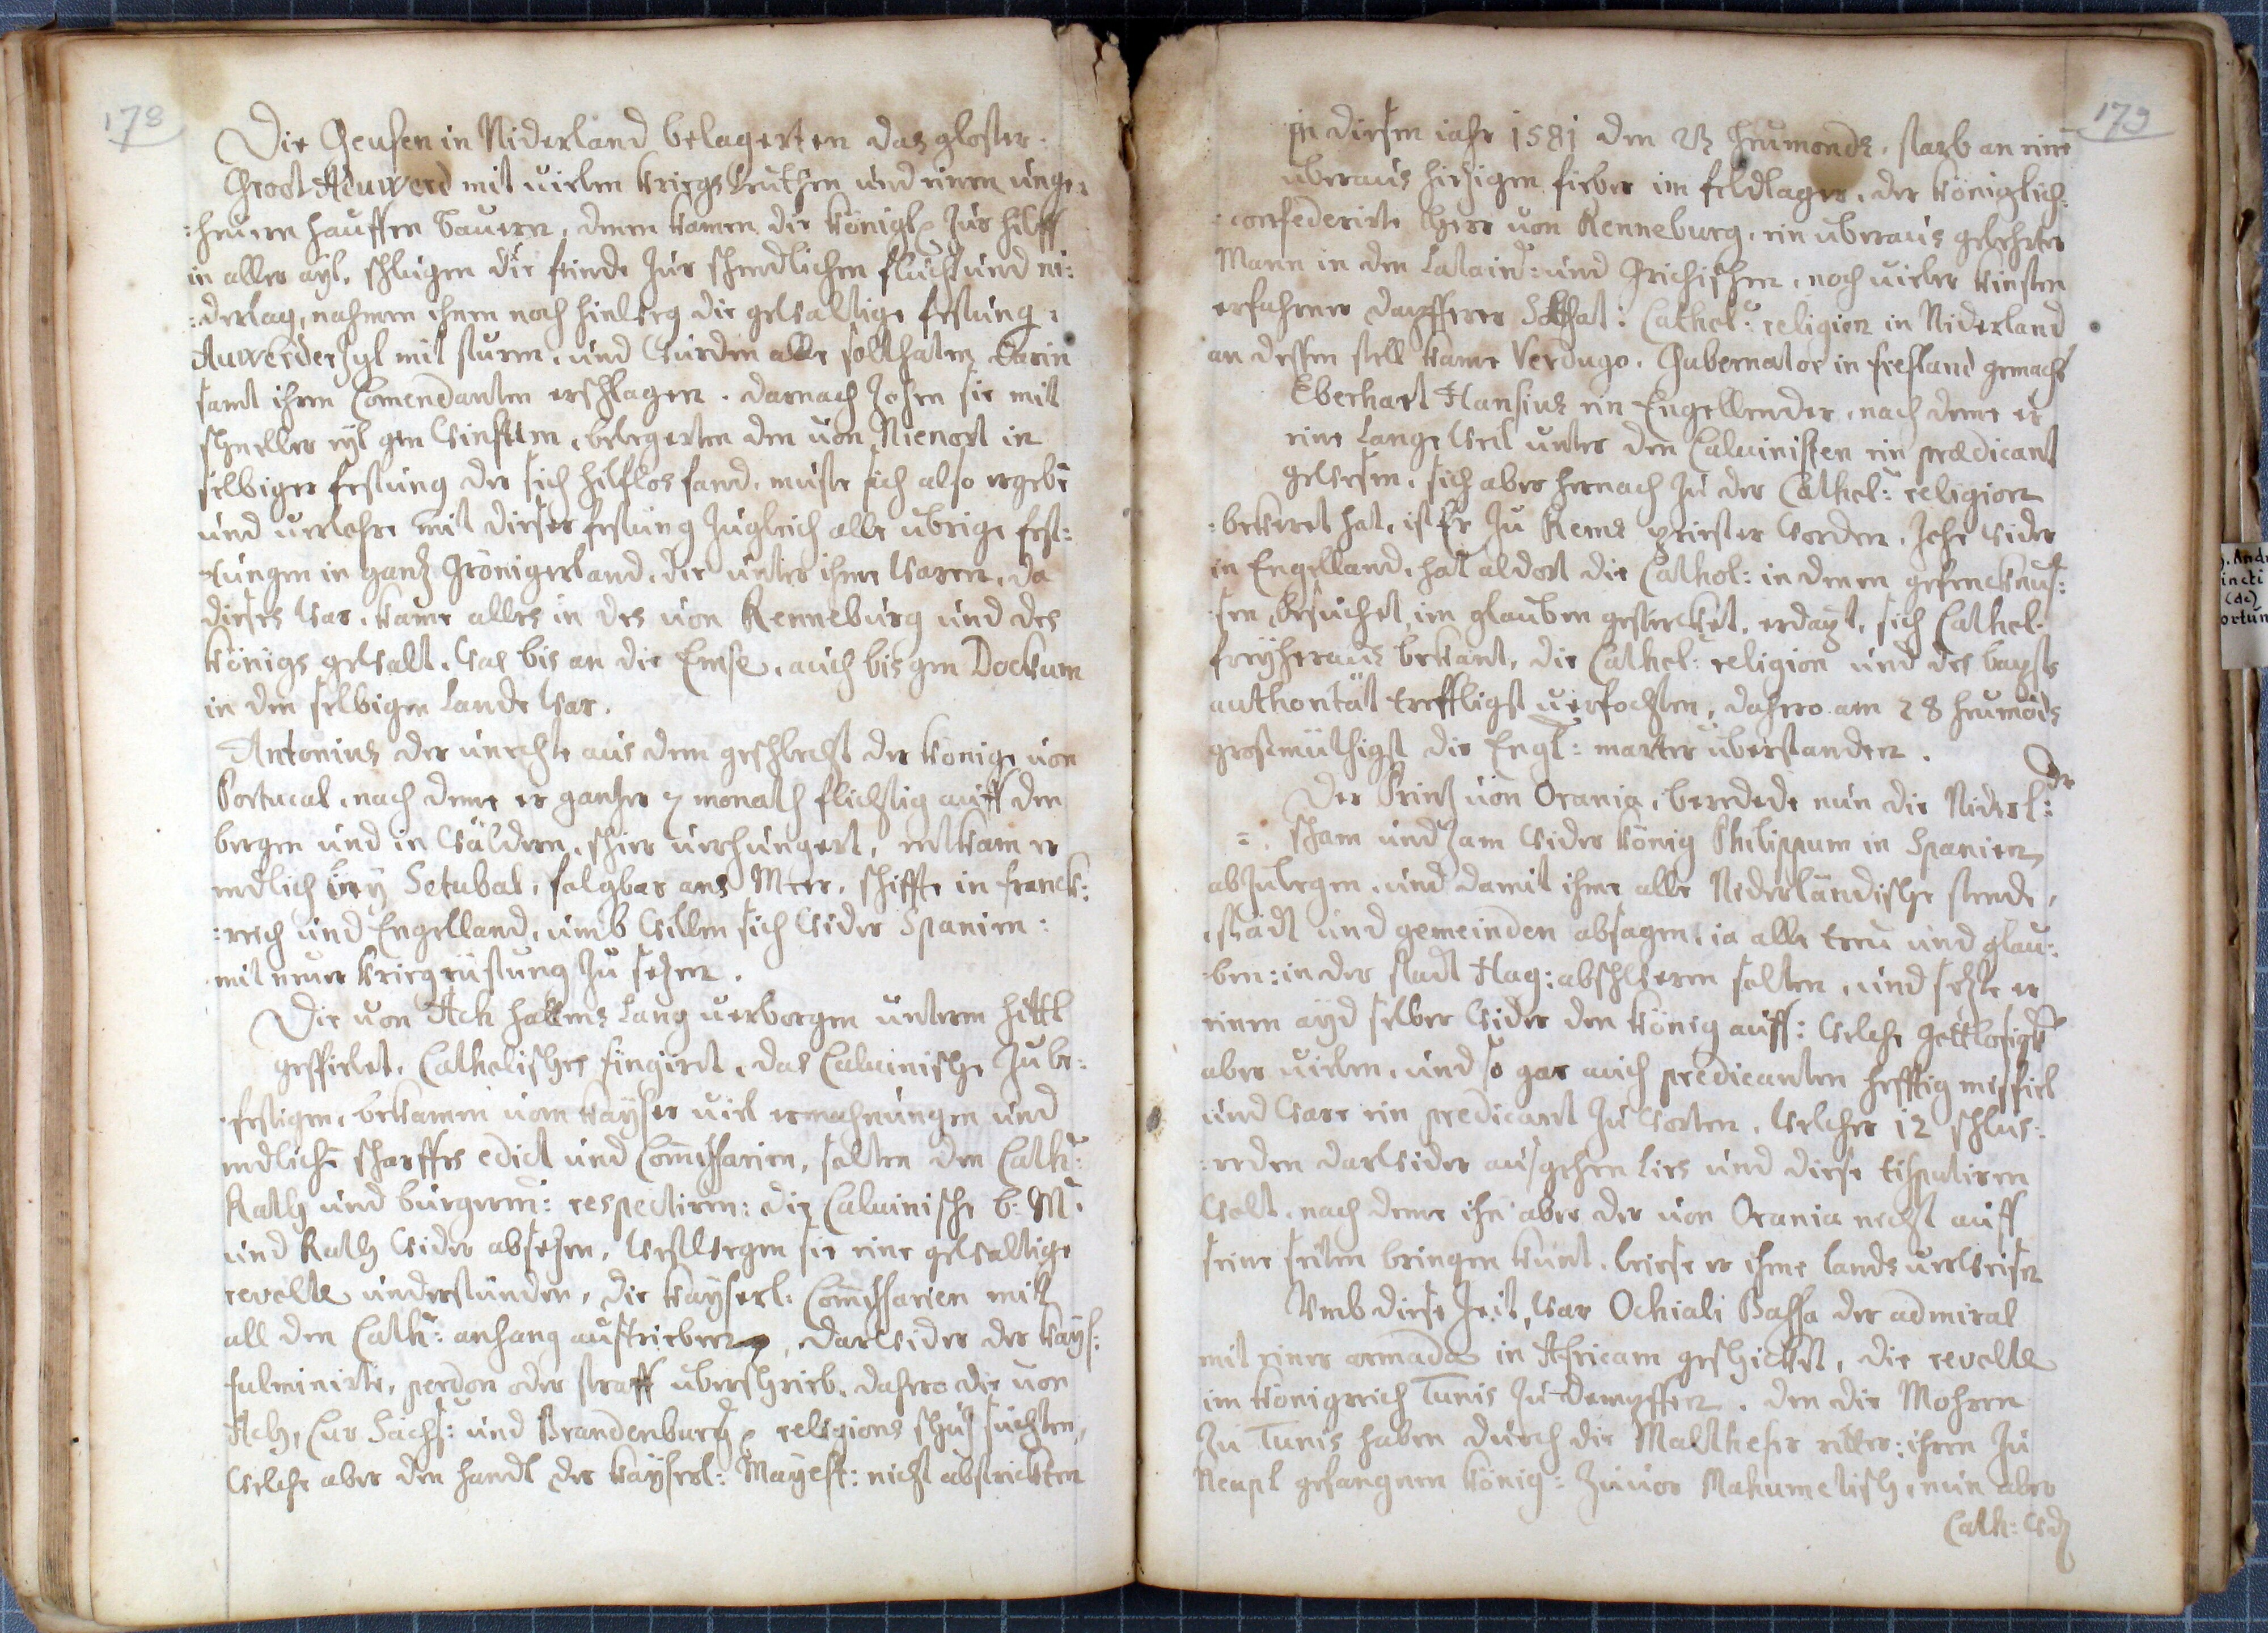 178
Die Geusen in Niderland belagerten das Closter
Groot Aduwerd mit vielen Kriegs Leuthen und einem unge:
:heuern hauffen Bauern, denen kamen die Königl: zur hilff
in aller ayl, schlugen die feinde zur schendlichen flucht und ni:
:derlag, nahmen ihnen noch hinweg die gewaltige festung
Auwerderzyl mit sturm, und wurden alle solthaten darin
samt ihrem Comendanten erschlagen. darnach zohen sie mit
schneller eyl gen Winsum, belegerten den von Nienort in
selbiger festung der sich hilflos fand, muste sich also ergebē
und verlohre mit dieser festung zugleich alle übrige fest:
tungen in gantz Gröningerland, die unter ihme waren, da
dieses war, kame alles in des von Renneburg und des
Königs gewalt, was bis an die Emse, auch bis gen Dockum
in den selbigen Lande war.
Antonius der unechte aus dem geschlecht der Könige von
Portucal, nach deme er gantzer 7 monath flichtig auff den
bergen und in wäldern, schier verhungert, entkam er
endlich bey Setubal, folgbar ans Meer, schiffte in Franck:
:reich und Engelland, umb willen sich wider Spanien:
mit neuer kriegsrüstung zu setzen.
Die von Ach hattens lang verborgen unterm hüttl
gespielet, Catholisches fingirt, das Calvinische zu be:
festigen, bekamen vom Kayser viel ermahnungen und
endlich scharffes edict und Comissarien, solten den Cath:
Rath und burgerm: respectiren: die Calvinische b: M:
und Rath wider absetzen, westwegen sie eine gewaltige
revolte understunden, die Kayserl: Comissarien mit
all den Cath: anhang austrieben, darwider der Kays:
fulminirte, perdon oder straff überschrieb, dahero die von
Ach, Cur Sachs: und Brandenburg religions schutz suchten,
welche aber den handl der Kayserl: Mayest: nicht abstrickten
179
In diesem iahr 1581 den 23 heumonds, starb an eine
uberaus hitzigen fieber im feldlager, der königlich:
confederirte Herr von Renneburg, ein uberaus gelehrter
Mann in den Latain: und Grichischen, noch vieler kinsten
erfahrner dapfferer Solthat: Cathol: religion in Niderland
an dessen stell kame Verdugo, Gubernator in fresland gemacht
Eberhart Hansius ein Engellender, nach deme er
eine lange weil unter den Calvinisten ein prædicant
gewesen, sich aber hernach zu der Cathol: religion
bekeret hat, ist Er zu Rems priester worden, zohe wider
in Engelland, hat aldort die Cathol: in denen gefencknus:
sen besuchet, im glauben gestercket, erdapt, sich Cathol.
freyheraus bekant, die Cathol: religion und des bapsts
authoritat treffligst verfochten, dahero am 28 heumōds
grosmüthigst die Engl: marter überstanden.
Der Printz von Orania, beredede nun die Niderl: der
sham und zam wider König Philippum in Spanien
abzulegen, und damit ihme alle Niderländische stende,
stadt und gemeinden absagen, ia alle treu und glau:
ben: in der stadt Hag: abschweren solten, und setzte er
einen ayd selber wider den König auff: welche gottlosigk
aber vielen, und so gar auch predicanten hefftig misfiel
und ware ein predicant zu worten, welcher 12 schlus:
reden darwider ausgehen lies und diese tisputiren
wolt, nach deme ihn aber der von Orania nicht auff
seine seiten bringen kunt, liese er ihme lands verweisen
Umb diese Zeit, war Ochiali Bassa der admiral
mit einer armada in Africam geschicket, die revolte
im Königreich Tunis zu dempffen. den die Mohren
zu Tunis haben durch die Maltheser ritter: ihren zu
Neapl gefangnen König: zuvor Mahumetisch, nun aber
Cath: wor